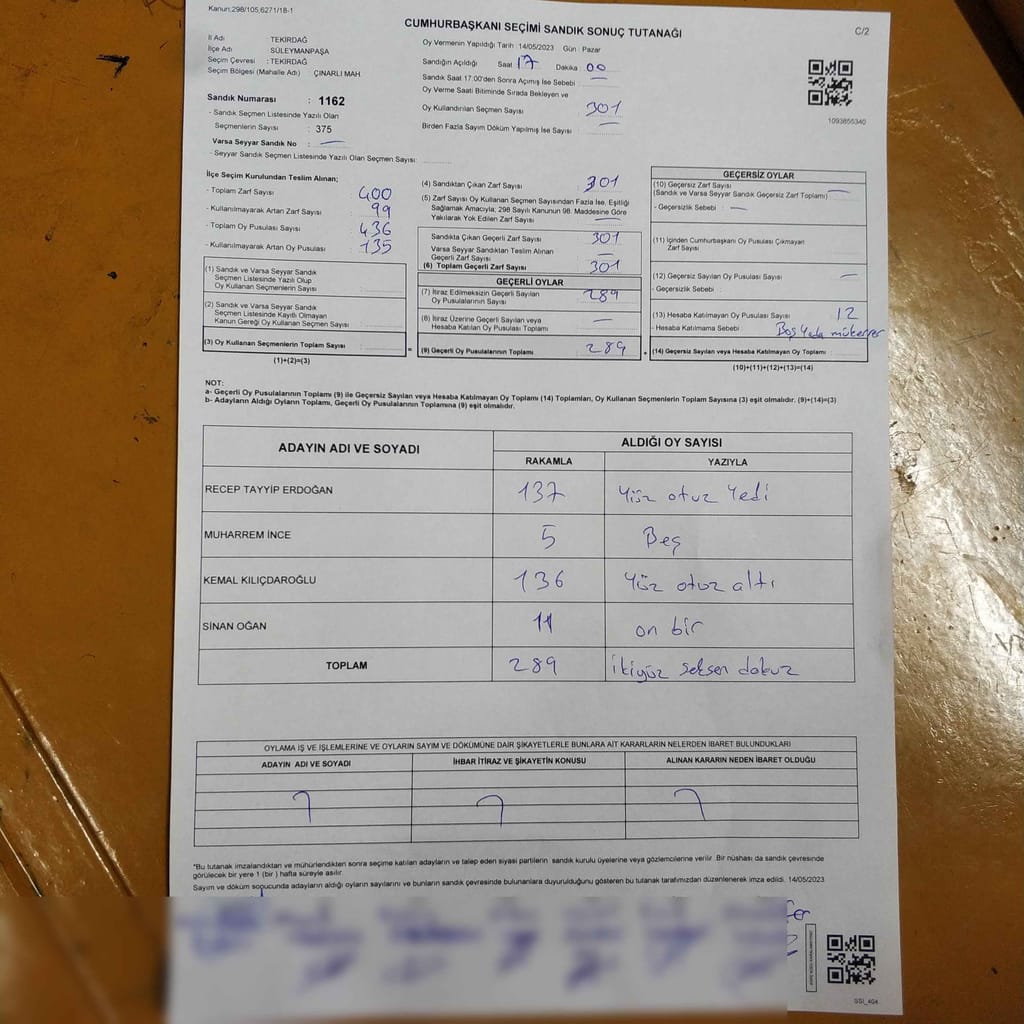 Kanun:298/105,6271/18-1
CUMHURBAŞKANI SEÇİMİ SANDIK SONUÇ TUTANAĞI
C/2
İl Adı TEKİRDAĞ
İlçe Adı SÜLEYMANPAŞA
Seçim Çevresi : TEKİRDAĞ
Seçim Bölgesi (Mahalle Adı) ÇINARLI MAH
Sandık Numarası : 1162
- Sandık Seçmen Listesinde Yazılı Olan
Seçmenlerin Sayısı : 375
Varsa Seyyar Sandık No : —
- Seyyar Sandık Seçmen Listesinde Yazılı Olan Seçmen Sayısı:
Oy Vermenin Yapıldığı Tarih :14/05/2023 Gün : Pazar
Sandığın Açıldığı Saat 17 Dakika 00
Sandık Saat 17:00'den Sonra Açımış İse Sebebi : —
Oy Verme Saati Bitiminde Sırada Bekleyen ve
Oy Kullandırılan Seçmen Sayısı : 301
Birden Fazla Sayım Döküm Yapılmış İse Sayısı : —
1093855340
İlçe Seçim Kurulundan Teslim Alınan;
- Toplam Zarf Sayısı : 400
- Kullanılmayarak Artan Zarf Sayısı : 99
- Toplam Oy Pusulası Sayısı : 436
- Kullanılmayarak Artan Oy Pusulası : 135
(1) Sandık ve Varsa Seyyar Sandık
Seçmen Listesinde Yazılı Olup
Oy Kullanan Seçmenlerin Sayısı :
(2) Sandık ve Varsa Seyyar Sandık
Seçmen Listesinde Kayıtlı Olmayan
Kanun Gereği Oy Kullanan Seçmen Sayısı :
(3) Oy Kullanan Seçmenlerin Toplam Sayısı :
(1)+(2)=(3)
(4) Sandıktan Çıkan Zarf Sayısı : 301
(5) Zarf Sayısı Oy Kullanan Seçmen Sayısından Fazla İse, Eşitliği
Sağlamak Amacıyla; 298 Sayılı Kanunun 98. Maddesine Göre
Yakılarak Yok Edilen Zarf Sayısı : —
Sandıkta Çıkan Geçerli Zarf Sayısı : 301
Varsa Seyyar Sandıktan Teslim Alınan
Geçerli Zarf Sayısı : —
(6) Toplam Geçerli Zarf Sayısı : 301
=
GEÇERLİ OYLAR
(7) İtiraz Edilmeksizin Geçerli Sayılan
Oy Pusulalarının Sayısı : 289
(8) İtiraz Üzerine Geçerli Sayılan veya
Hesaba Katılan Oy Pusulası Toplamı : —
(9) Geçerli Oy Pusulalarının Toplamı : 289
+
GEÇERSİZ OYLAR
(10) Geçersiz Zarf Sayısı
(Sandık ve Varsa Seyyar Sandık Geçersiz Zarf Toplamı) : —
- Geçersizlik Sebebi : —
(11) İçinden Cumhurbaşkanı Oy Pusulası Çıkmayan
Zarf Sayısı :
(12) Geçersiz Sayılan Oy Pusulası Sayısı : —
- Geçersizlik Sebebi :
(13) Hesaba Katılmayan Oy Pusulası Sayısı : 12
- Hesaba Katılmama Sebebi : Boş yada mükerrer
(14) Geçersiz Sayılan veya Hesaba Katılmayan Oy Toplamı :
(10)+(11)+(12)+(13)=(14)
NOT:
a- Geçerli Oy Pusulalarının Toplamı (9) ile Geçersiz Sayılan veya Hesaba Katılmayan Oy Toplamı (14) Toplamları, Oy Kullanan Seçmenlerin Toplam Sayısına (3) eşit olmalıdır. (9)+(14)=(3)
b- Adayların Aldığı Oyların Toplamı, Geçerli Oy Pusulalarının Toplamına (9) eşit olmalıdır.
ADAYIN ADI VE SOYADI ALDIĞI OY SAYISI
RAKAMLA YAZIYLA
RECEP TAYYİP ERDOĞAN 137 Yüz otuz Yedi
MUHARREM İNCE 5 Beş
KEMAL KILIÇDAROĞLU 136 Yüz otuz altı
SİNAN OĞAN 11 on bir
TOPLAM 289 ikiyüz seksen dokuz
OYLAMA İŞ VE İŞLEMLERİNE VE OYLARIN SAYIM VE DÖKÜMÜNE DAİR ŞİKAYETLERLE BUNLARA AİT KARARLARIN NELERDEN İBARET BULUNDUKLARI
ADAYIN ADI VE SOYADI İHBAR İTİRAZ VE ŞİKAYETİN KONUSU ALINAN KARARIN NEDEN İBARET OLDUĞU
*Bu tutanak imzalandıktan ve mühürlendikten sonra seçime katılan adayların ve talep eden siyasi partilerin sandık kurulu üyelerine veya gözlemcilerine verilir. Bir nüshası da sandık çevresinde
görülecek bir yere 1 (bir ) hafta süreyle asılır.
Sayım ve döküm sonucunda adayların aldığı oyların sayılarını ve bunların sandık çevresinde bulunanlara duyurulduğunu gösteren bu tutanak tarafımızdan düzenlenerek imza edildi. 14/05/2023
SSI_404